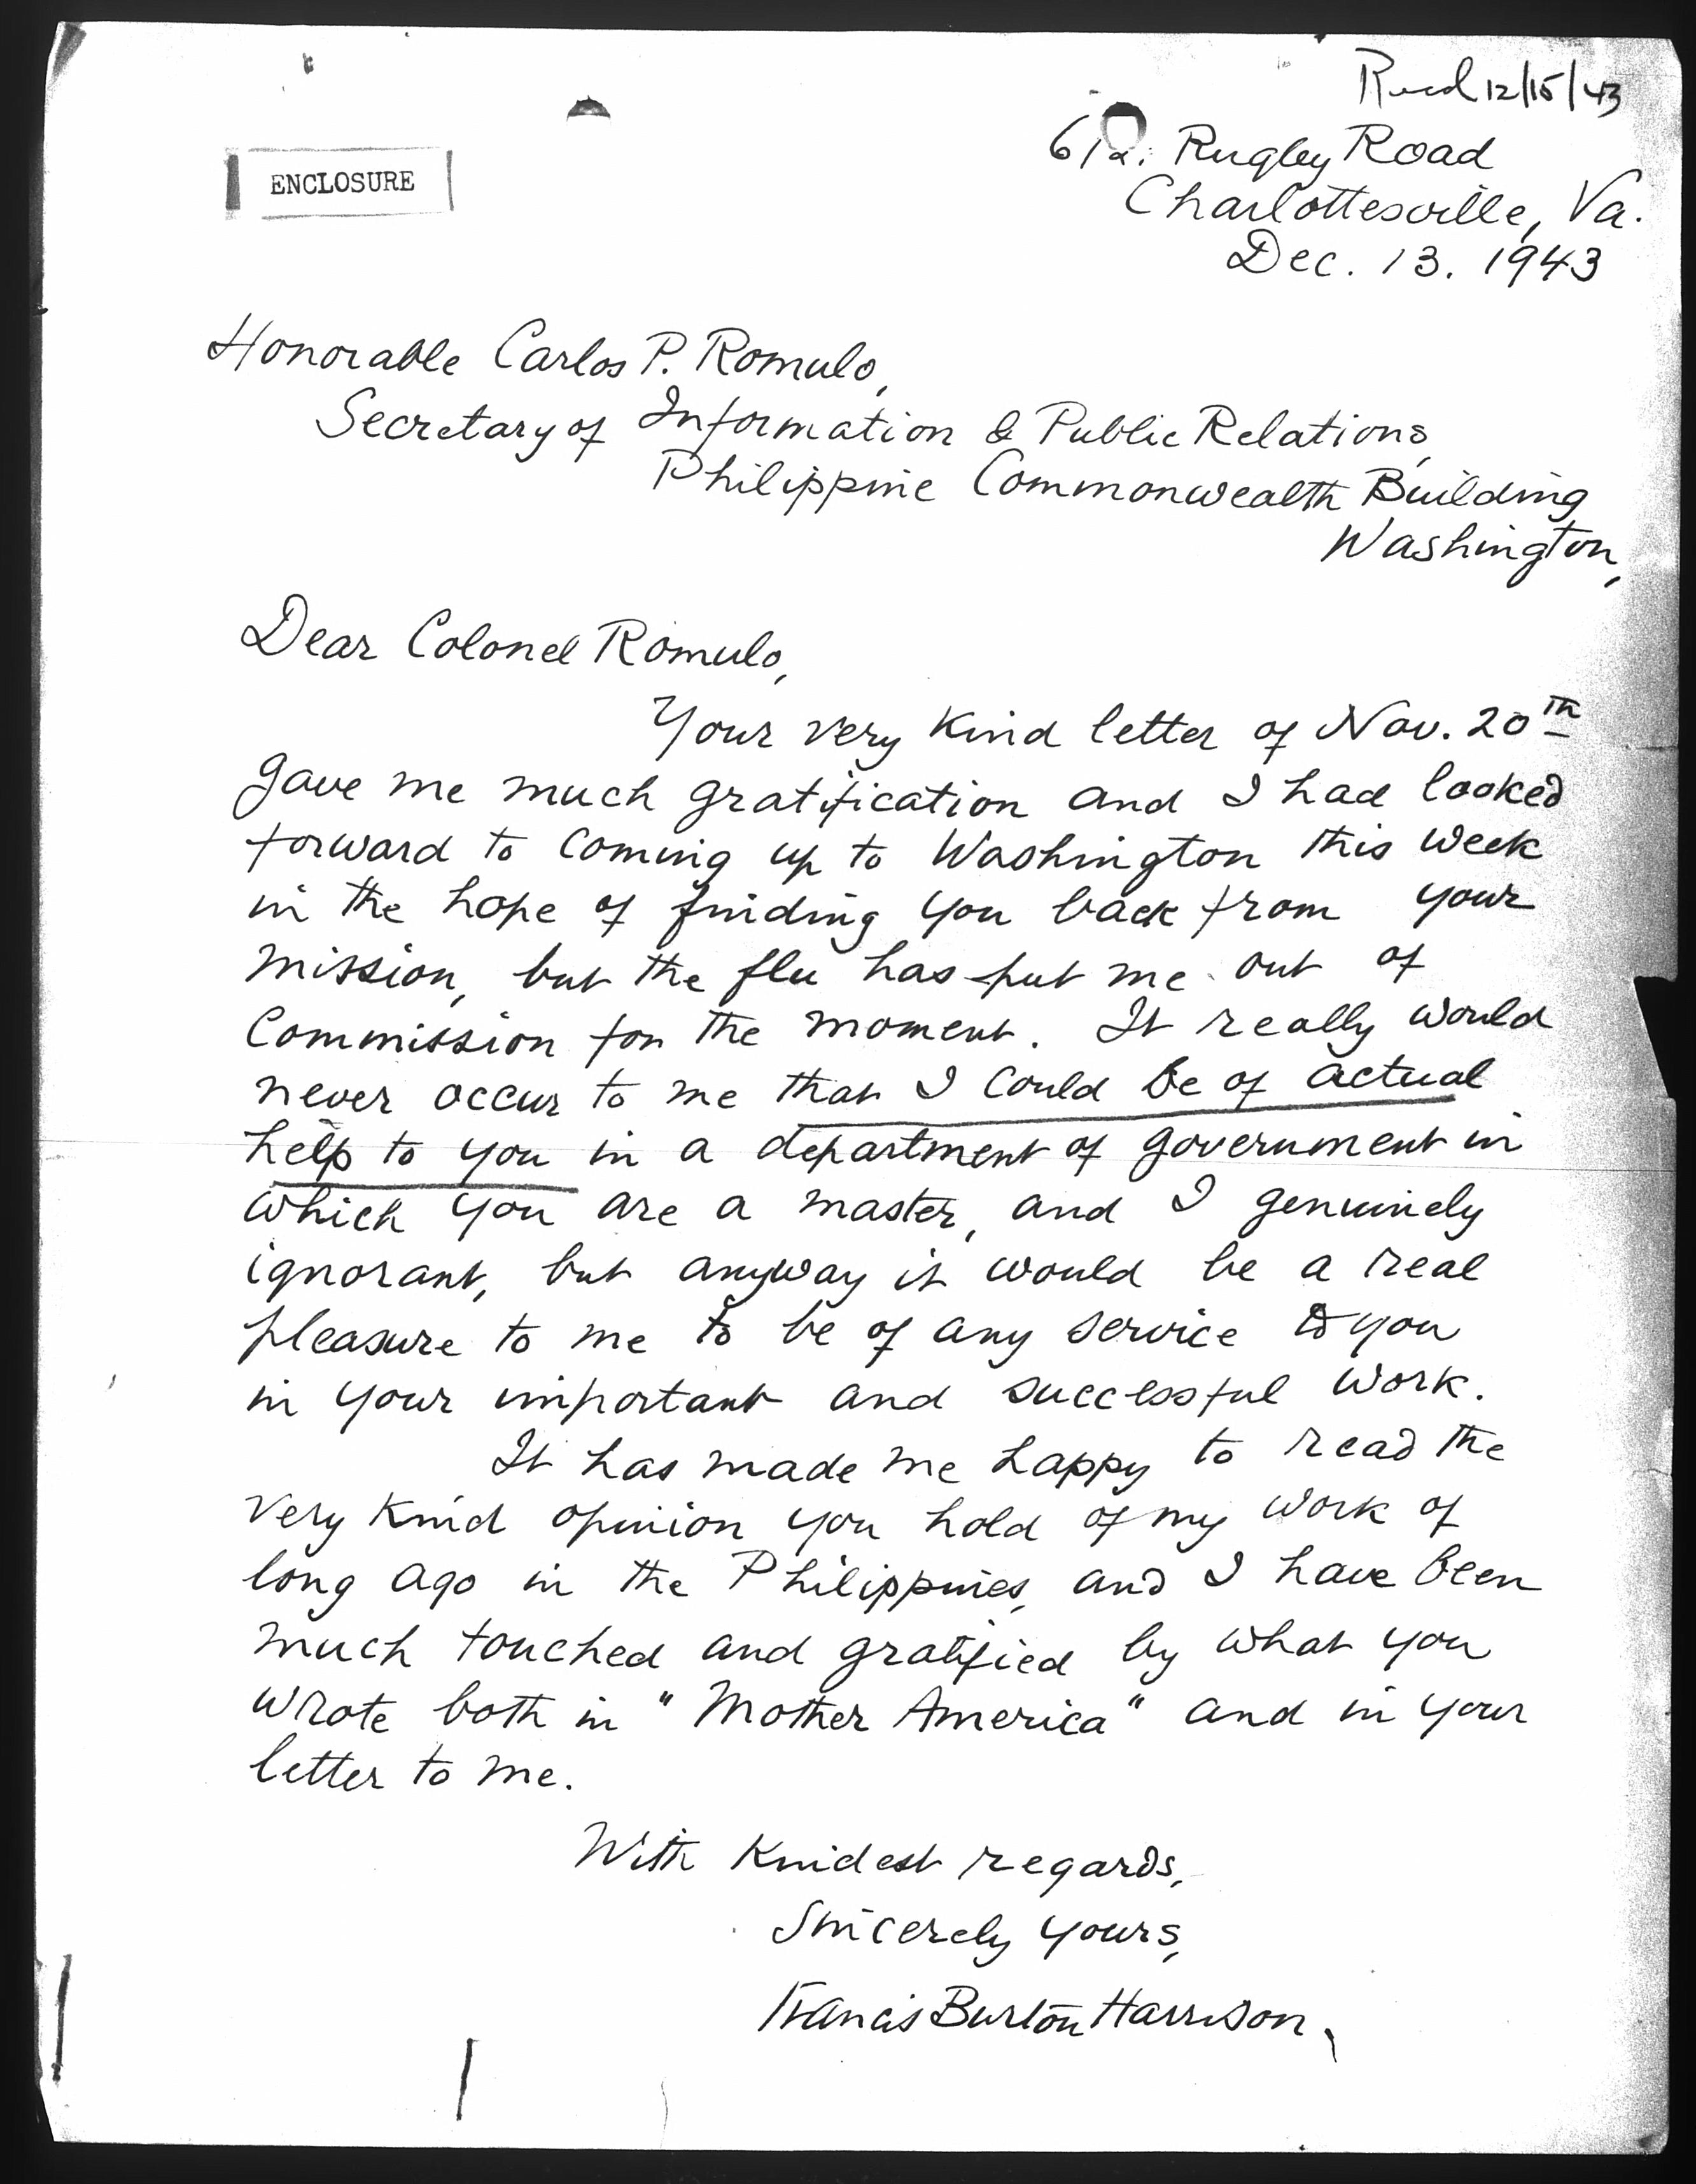 Recd 12/15/43
612. Rugby Road
Charlottesville, Va.
Dec. 13. 1943
ENCLOSURE
Honorable Carlos P. Romulo,
Secretary of Information & Public Relations,
Philippine Commonwealth Building
Washington,
Dear Colonel Romulo,
Your very kind letter of Nov. 20th
gave me much gratification and I had looked
forward to coming up to Washington this week
in the hope of finding you back from your
mission, but the flu has put me out of
commission for the moment. It really would
never occur to me that I could be of actual
help to you in a department of government in
which you are a master, and I genuinely
ignorant, but anyway it would be a real
pleasure to me to be of any service to you
in your important and successful work.
It has made me happy to read the
very kind opinion you hold of my work of
long ago in the Philippines, and I have been
much touched and gratified by what you
wrote both in "Mother America" and in your
letter to me.
With kindest regards,
Sincerely yours,
Francis Burton Harrison.